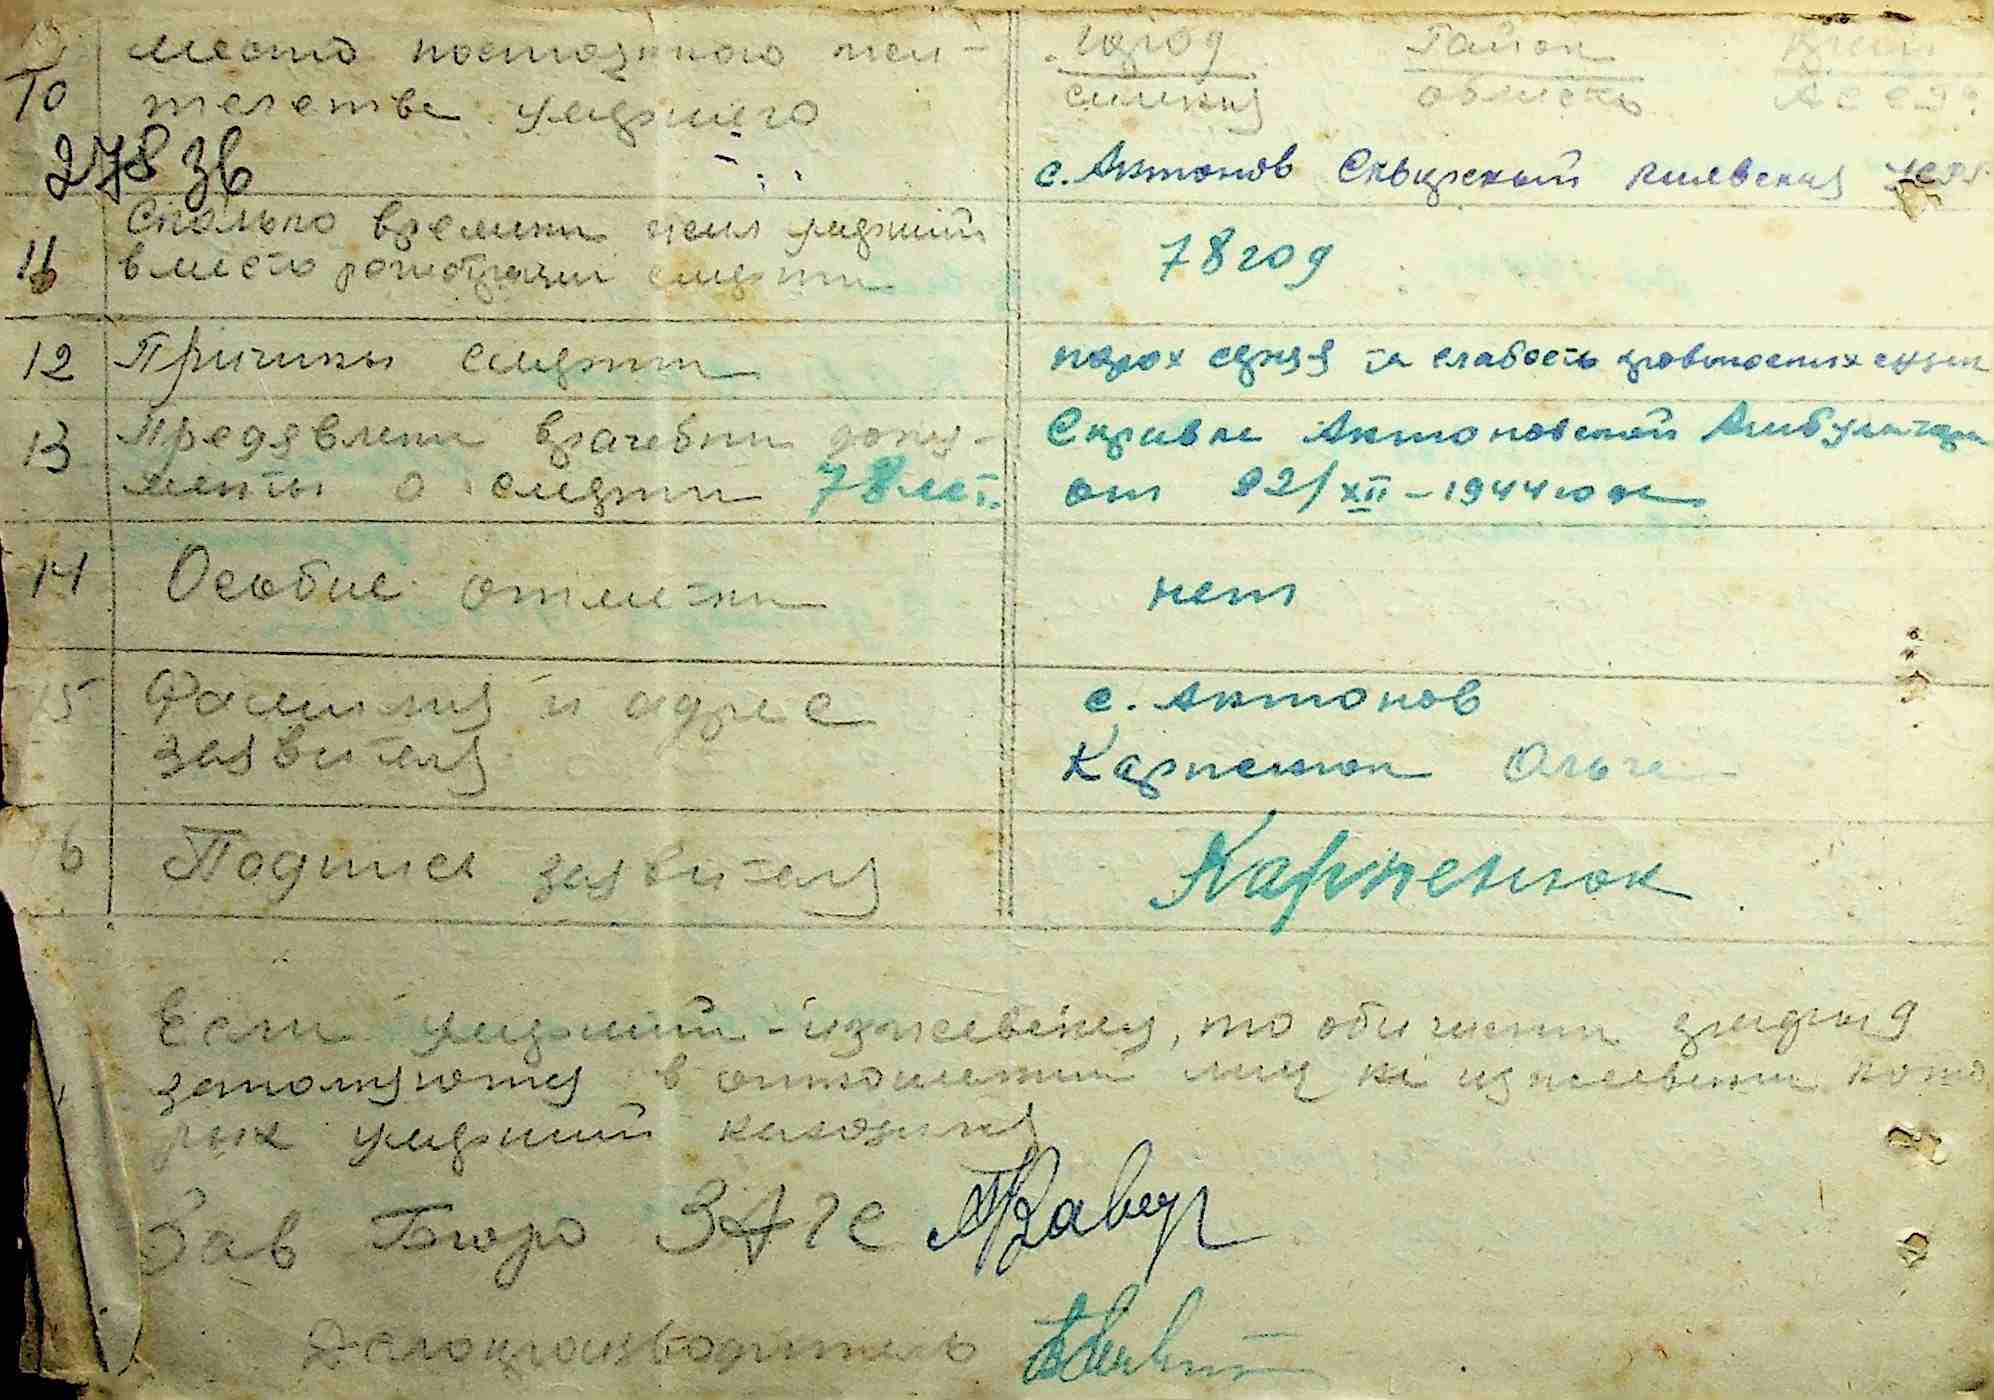 10 место постоянного жи-
тельства умершего
город Район Край
селения область АССР
278 зв
с. Антонов Сквирский киевская УССР
11 Сколько времени жил умерший
в место регистрации смерти
78 год
12 Причины смерти
порох серця та слабость
13 Предявлени врачебни доку-
менты о смерти 78 лет.
Справка Антоновской Амбулатори
от 22/XII-1944 года
14 Особие отметки
нет
15 Фамилия и адрес
заявителя
с. Антонов
Карпенюк Ольга
16 Подпись заявителя
Карпенюк
Если умерший - иждевенец, то
заполняются в отношении лиц на иждевении кото
рых умерший находился
Зав Бюро ЗАГС
Делопроизводитель